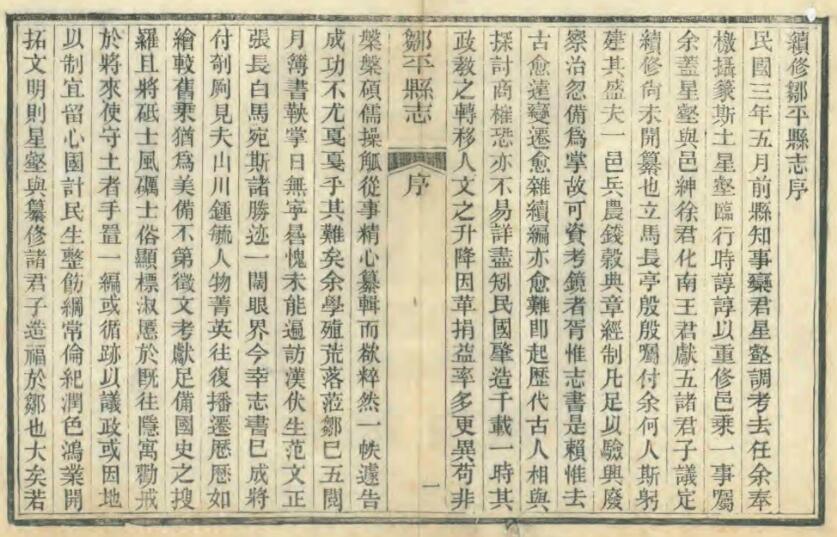 續修鄒平縣志序
民國三年五月前縣知事欒君星壑調考去任余奉
檄攝篆斯土星壑臨行時諄諄以重修邑乘一事屬
余蓋星壑與邑紳徐君化南王君獻五諸君子議定
續修尙未開纂也立馬長亭殷殷囑付余何人斯躬
建其盛夫一邑兵農錢穀典章經制凡足以驗興廢
察治忽備爲掌故可資考鏡者胥惟志書是賴惟去
古愈遠變遷愈雜續編亦愈難即起歷代古人相與
探討商榷恐亦不易詳盡矧民國肇造千載一時其
政敎之轉移人文之升降因革損益率多更異苟非
鄒平縣志
序
一
槃槃碩儒操觚從事精心纂輯而欲粹然一帙遽告
成功不尤戞戞乎其難矣余學殖荒落蒞鄒已五閱
月簿書鞅掌日無寧晷愧未能遍訪漢伏生范文正
張長白馬宛斯諸勝迹一闊眼界今幸志書已成將
付剞劂見夫山川鍾毓人物菁英往復播遷歷歷如
繪較舊乘猶爲美備不第徵文考獻足備國史之搜
羅且將砥士風礪士俗顯標淑慝於既往隱寓勸戒
於將來使守土者手置一編或循跡以議政或因地
以制宜留心國計民生整飭綱常倫紀潤色鴻業開
拓文明則星壑與纂修諸君子造福於鄒也大矣若